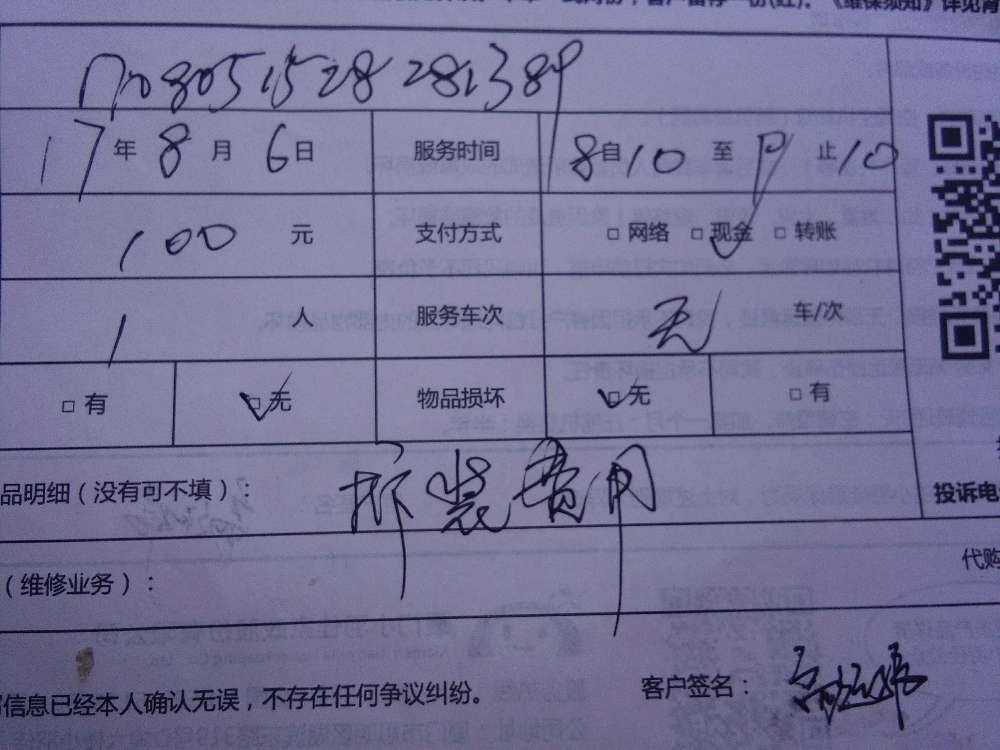 《维保须知》详见背
170805152828281389
17年8月6日 服务时间 8自10至 止10
100元 支付方式 □网络 □现金 □转账
1人 服务车次 无 车/次
□有 □无 物品损坏 □无 □有
品明细（没有可不填）: 拆装费用
投诉电
代购
（维修业务）:
信息已经本人确认无误，不存在任何争议纠纷。
客户签名: